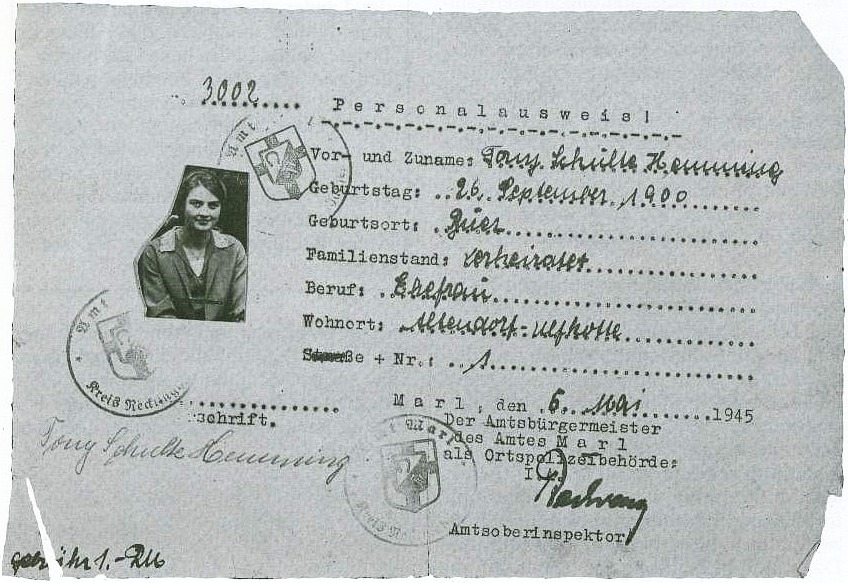 3002..........
Personalausweis!
Vor- und Zuname: Tony Schulte Hemming
Geburtstag: ..26. September 1900.......
Geburtsort: .Buer.......
Familienstand: verheiratet.......
Beruf: .Ehefrau.......
Wohnort: .Altendorf-Ulfkotte.......
Straße + Nr.: ..1.......
Marl, den .6. Mai .......1945
Der Amtsbürgermeister
des Amtes Marl
als Ortspolizeibehörde:
I.
Amtsoberinspektor
schrift.
Tony Schulte Hemming
Gebühr 1.- RM
Amt
Amt
Kreis Recklingh
Amt Marl
Kreis R